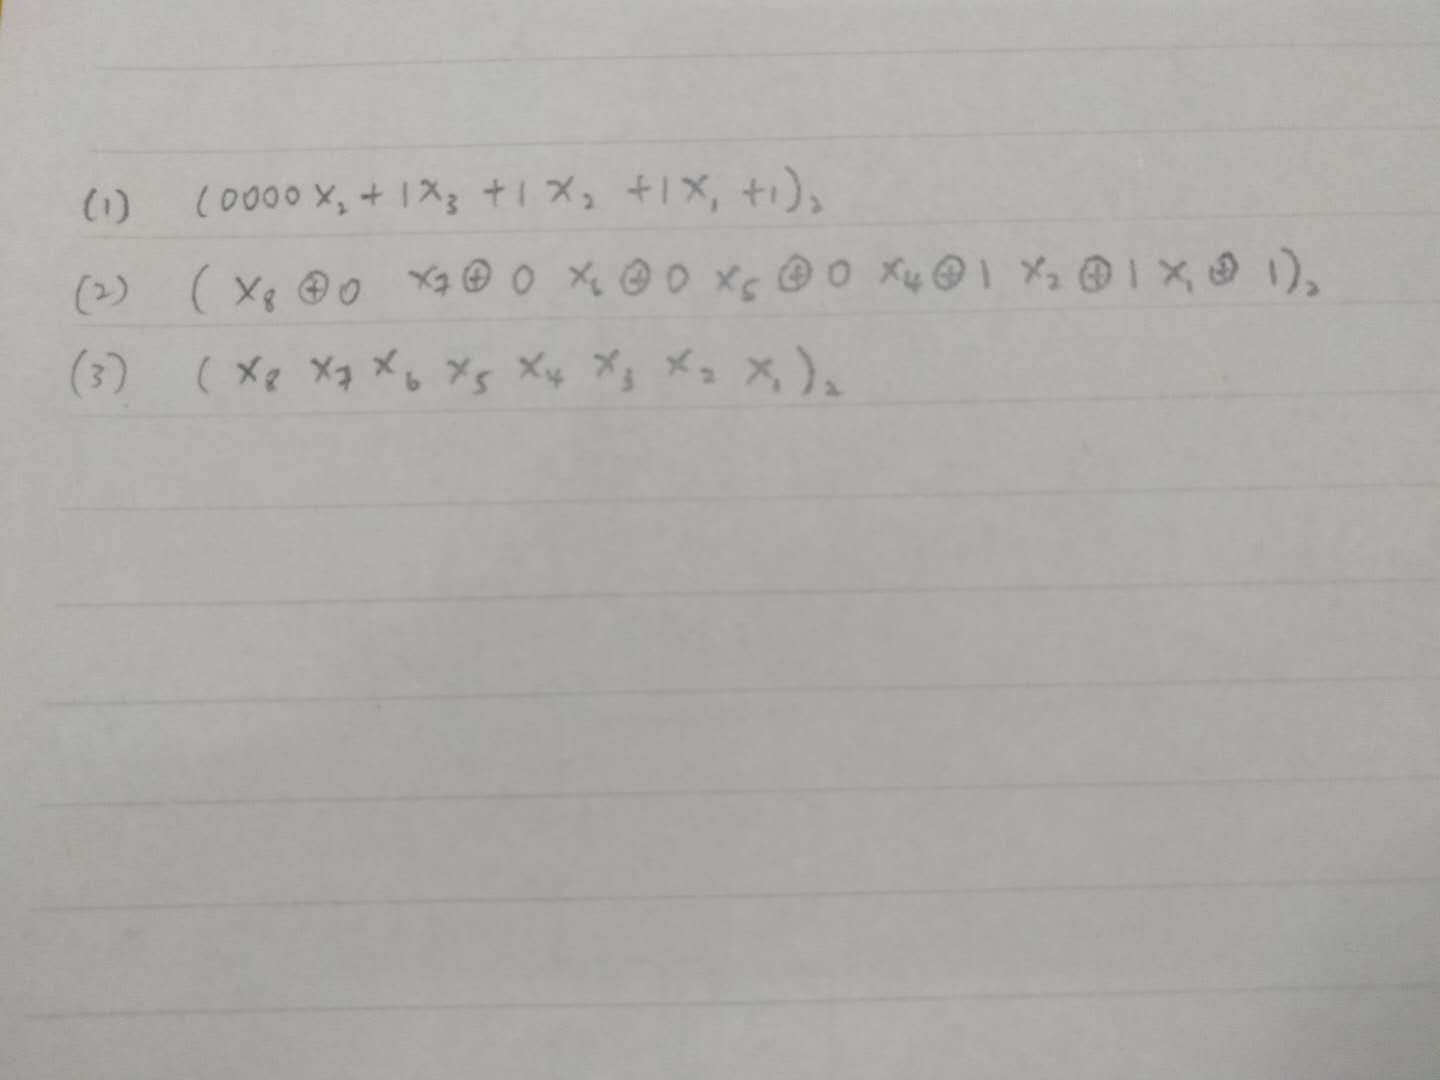 (1) (0000 x₂ + 1 x₃ + 1 x₂ + 1 x₁ + 1)₂
(2) ( x₈ ⊕ 0 x₇ ⊕ 0 x₆ ⊕ 0 x₅ ⊕ 0 x₄ ⊕ 1 x₂ ⊕ 1 x₁ ⊕ 1)₂
(3) ( x₈ x₇ x₆ x₅ x₄ x₃ x₂ x₁ )₂